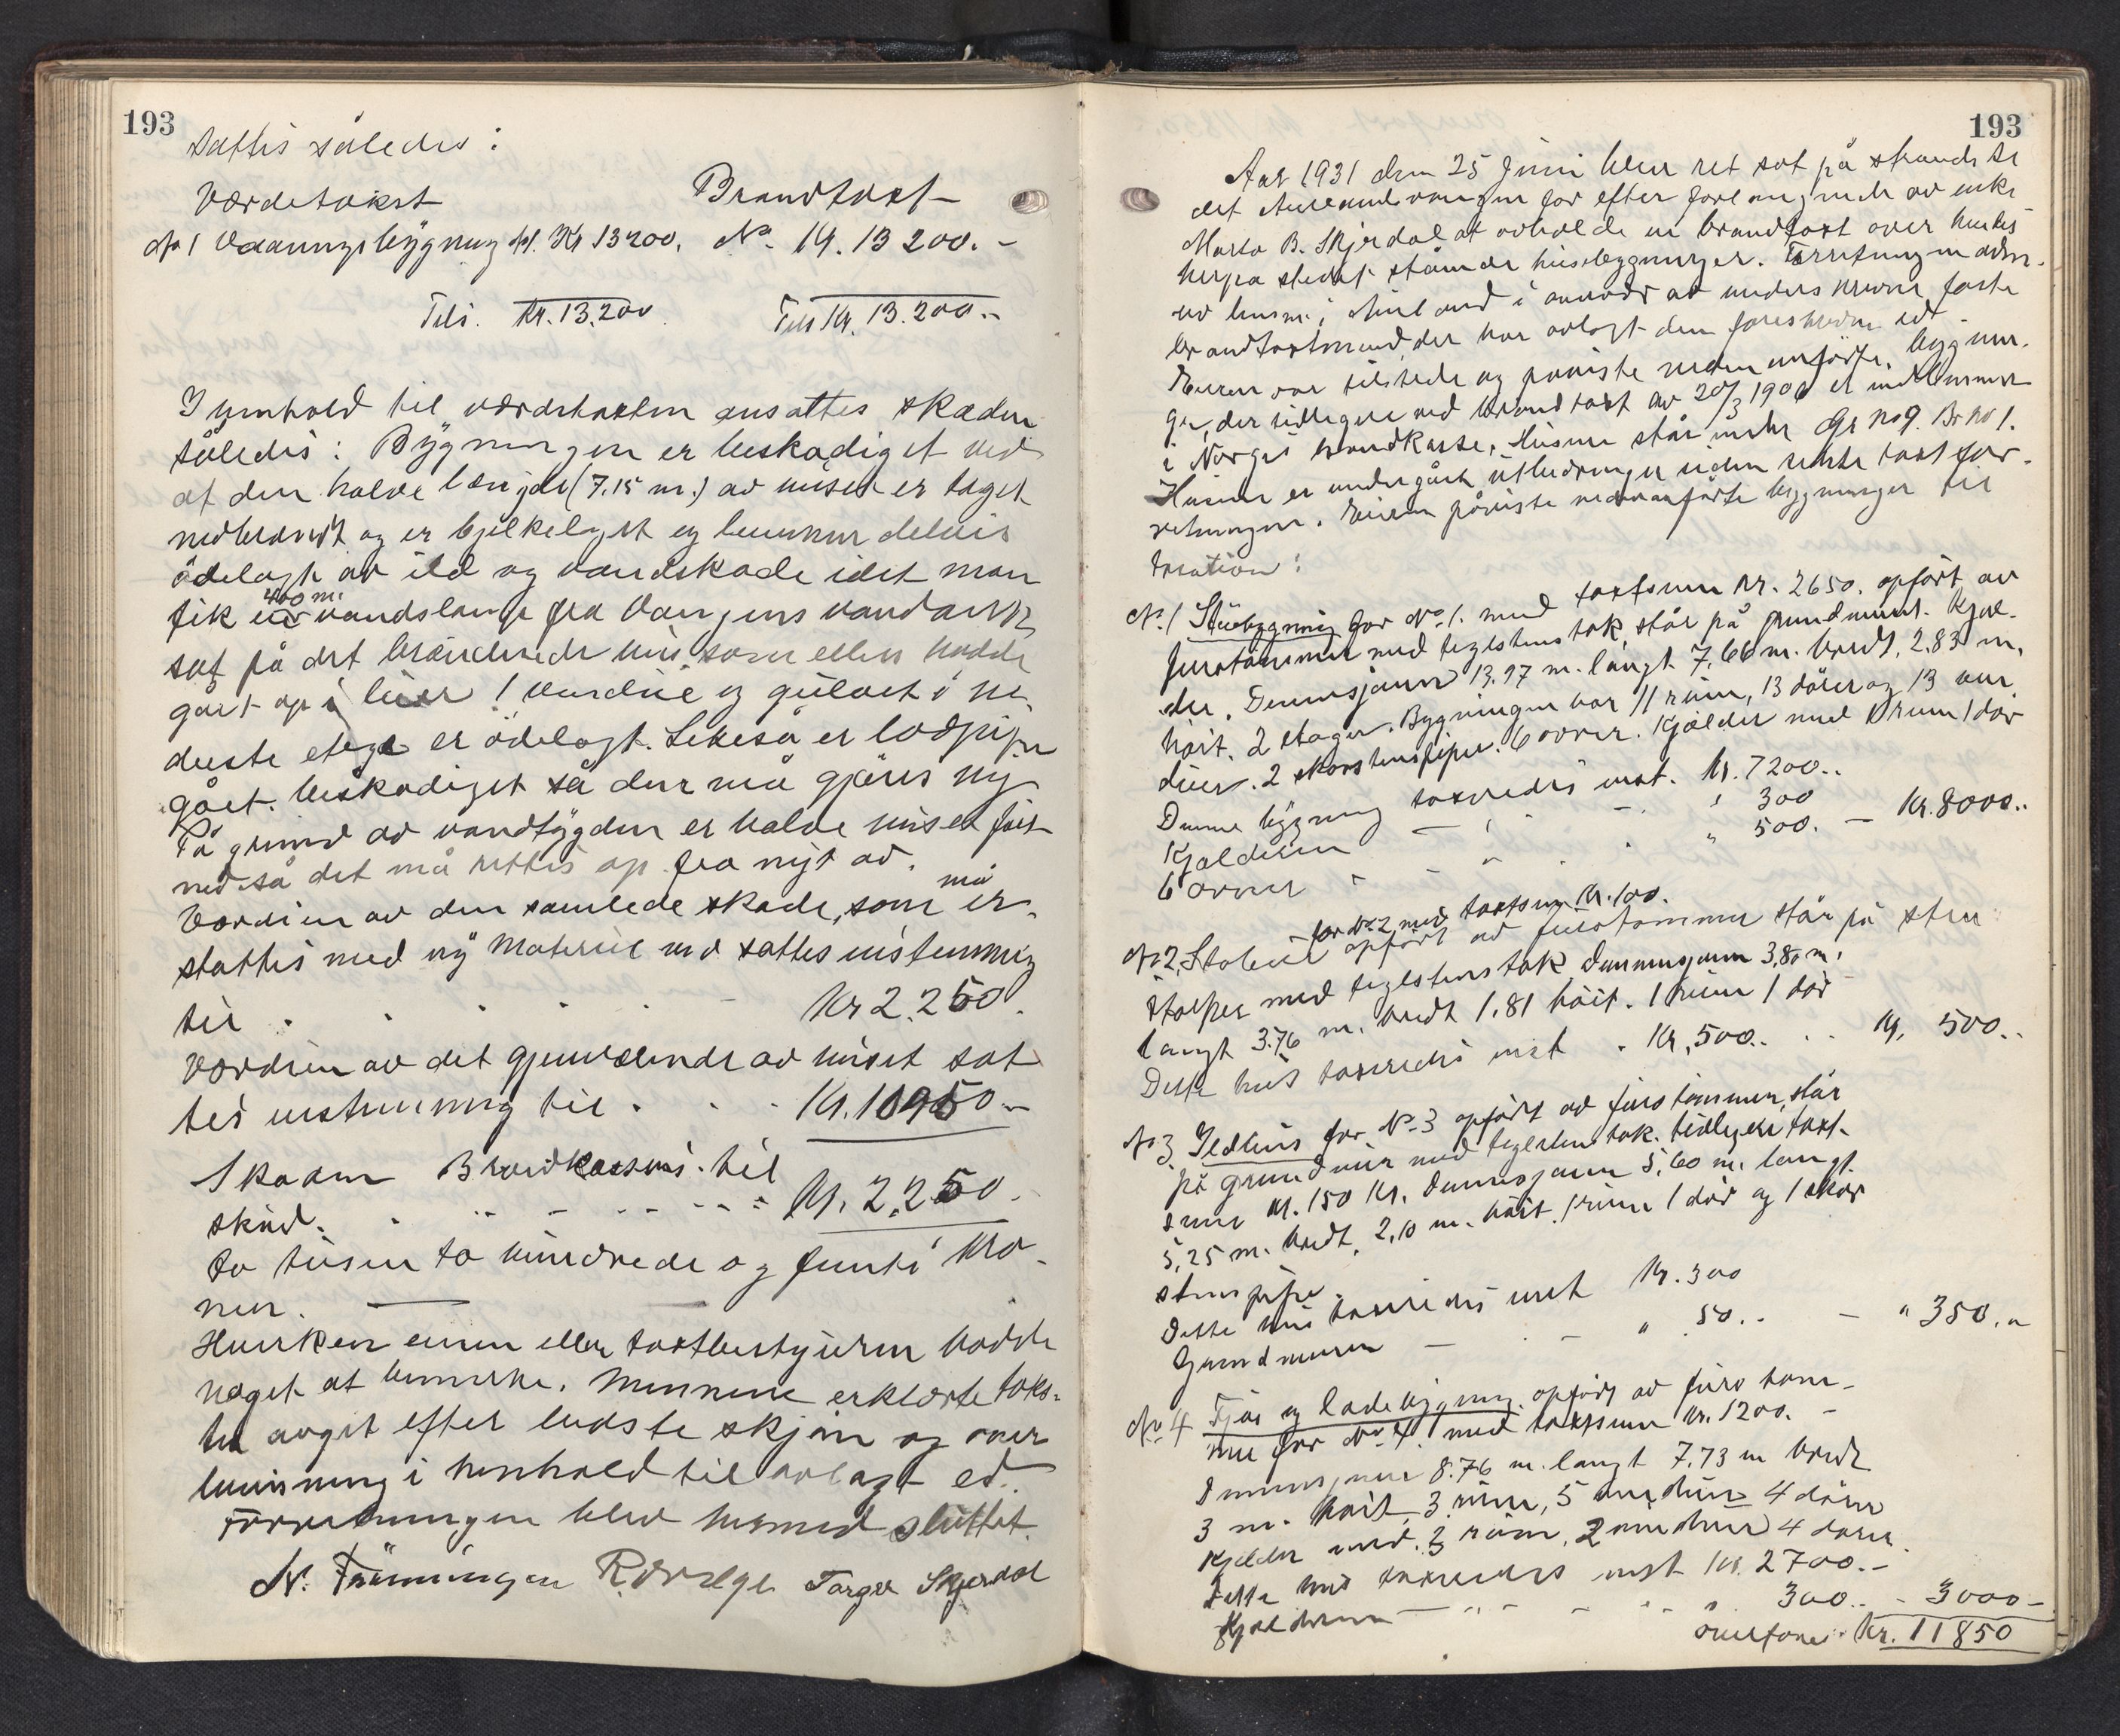 193
sattes således:
Værdetakst Brandtaxt
No 1 Vaaningsbygning Kr 13200. No. 14. 13200.-
Tils. Kr. 13.200 Tils Kr. 13.200.-
I henhold til værdetaxten ansattes skaden
således: Bygningen er beskadiget ved
at den halve længde (7.15 m.) av huset er taget
nedbrændt og er bjelkelaget og delvis
ödelagt av ild og vandskade idet man
400 m.
fik en vandslange fra Vangens vandverk
sat på det brændende hus, som ellers hadde
gåt op i luer! og gulvet i ne-
derste etage er ödelagt. Likeså er
gået. beskadiget så der må gjöres ny
På grund av vandtyngden er halve huset
ned så det må rettes op fra nyt av.
Værdien av den samlede skade, som må er-
stattes med ny materiel m.v. sattes enstemmig
til . . . . - Kr 2.250.
Værdien av det gjenværende av huset sat-
tes enstemmig til . . . Kr. 10950.-
Skaden Brandkassens til-
skud. . . . Kr. 2.250.-
to tusen to hundrede og femti kro-
ner.
Hverken eieren eller taxtbestyreren hadde
noget at bemerke. Mennene erklærte taks-
ten avgit efter bedste skjön og over-
bevisning i henhold til avlagt ed.
Forretningen blev hermed sluttet.
N. Fränningen R. Torger Skjerdal
193
Aar 1931 den 25 Juni blev ret sat på
det Aurland for efter forlangende av enke
Marta B. Skjerdal at avholde en brandtaxt over hendes
herpa stedet stående husebygninger. Forretningen adm.
av lensm. i Aurland i overvær av underskrevne faste
brandtaxtmænd, der har avlagt den foreskrevne ed.
Eieren var tilstede og påviste nedenanförte bygnin-
ger, der tidligere ved brandtaxt av 20/3 1906 er indlemmet
i Norges brandkasse. Husene står under Gr no 9. Br no 1.
Husene er undergåt utbedringer siden sidste taxtfor-
retningen. Eieren påviste nedenanförte bygninger til
taxation:
No. 1 Stuebygning før No. 1. med taxtsum kr. 2650. opfört av
furutömmer med teglstenstak, står på grundmur. Kjæl-
der. Dimensjoner 13.97 m. langt 7.66 m. bredt, 2.83 m.
höit. 2 etager. Bygningen har 11 rum, 13 dörer og 13 vin-
duer. 2 skorstenspiper. 6 ovner. Kjælder med 1 rum 1 dör
Denne bygning taxeredes verd. kr. 7200..
Kjælderen — " - " 300
6 ovner - " . " 500. — Kr. 8000..
No 2. Stabur før No 2 med taxtsum kr. 100.
opfört av furutömmer står på sten
stolper med teglstenstak Dimensjoner 3,80 m.
langt 3.76 m. bredt 1.81 höit. 1 rum 1 dör
Dette hus taxeredes verd . Kr. 500.. . . Kr. 500..
No 3 Ildhus før No. 3 opfört av furu tömmer, står
på grundmur med teglstenstak. tidligere taxt-
sum kr. 150 Kr. Dimensjoner 5,60 m. langt.
5,25 m. bredt, 2,10 m. höit. 1 rum 1 dör og 1 skor-
stenspipe.
Dette hus taxeredes verd Kr. 300
Grundmuren — " 50.. — " 350."
No. 4 Fjös og ladebygning, opfört av furu töm-
mer før No. 4 med taxtsum kr. 1200.-
Dimensjoner 8.76 m. langt 7.73 m bredt
3 m. höit, 3 rum, 5 vinduer 4 dörer
Kjelder med. 3 rum, 2 vinduer 4 dörer.
Dette hus taxeredes verd Kr. 2700.-
Kjælderen — " - 300.. - 3000-
överföres Kr. 11850